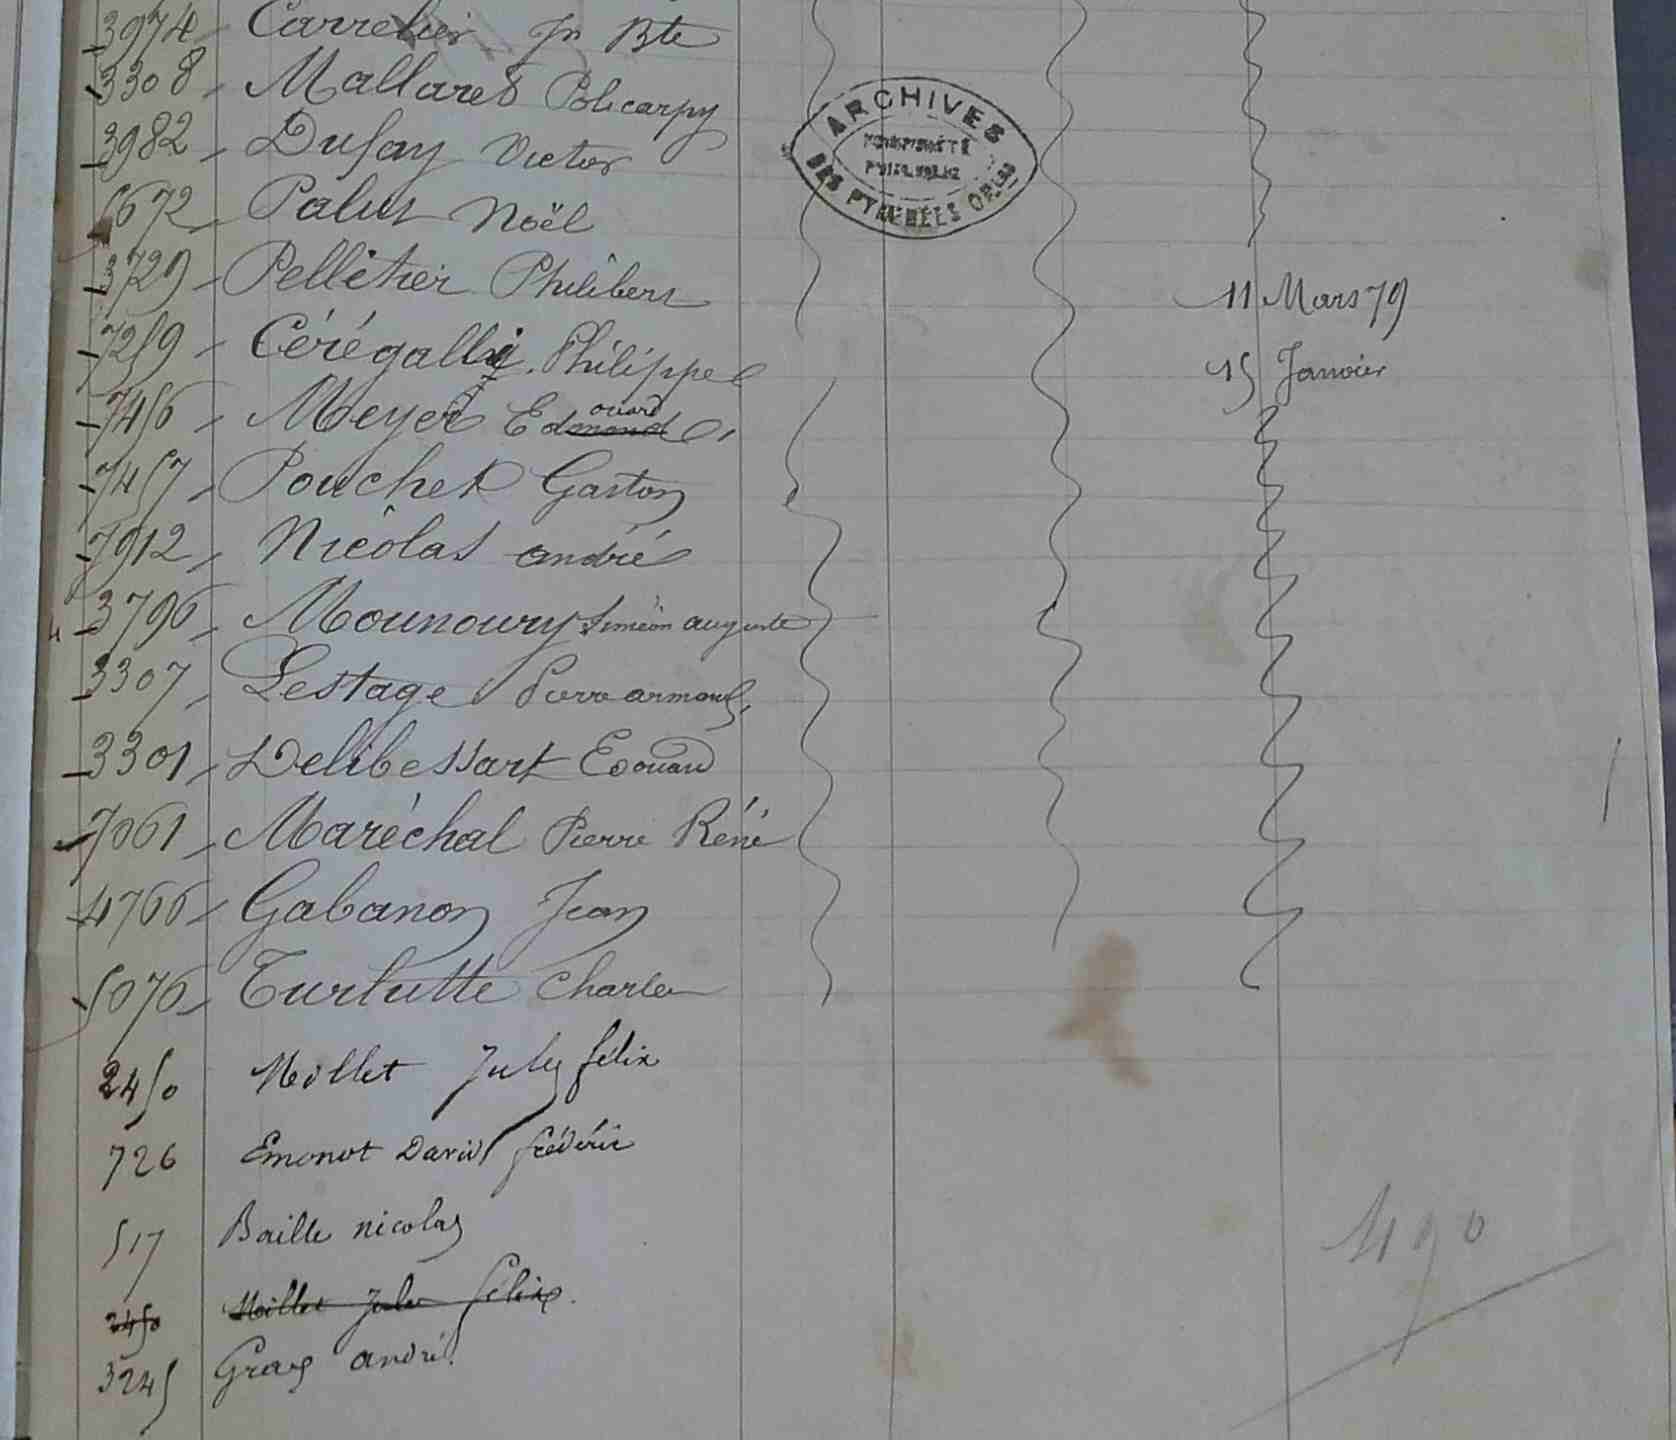 3974 Carrelier Jn Bte
3308 Mallares Policarpy
3982 Dufay Victor
ARCHIVES
DES PYRÉNÉES ORLES
5672 Palus Noël
3729 Pelletier Philibert 11 Mars 79
7259 Cérégally Philippe 15 Janvier
7456 Meyer Edmond ouard
7457 Pouchet Gaston
7912 Nicolas andré
3796 Mounoury Siméon auguste
3307 Lestage Pierre armand
3301 Delibessart Edouard
7061 Maréchal Pierre Réné
4766 Gabanon Jean
5076 Turlutte Charles
2450 Meillet Jules félix
726 Emonot David frédéric
517 Baille nicolas
2450 Meillet Jules félix
3245 Gras andré
490